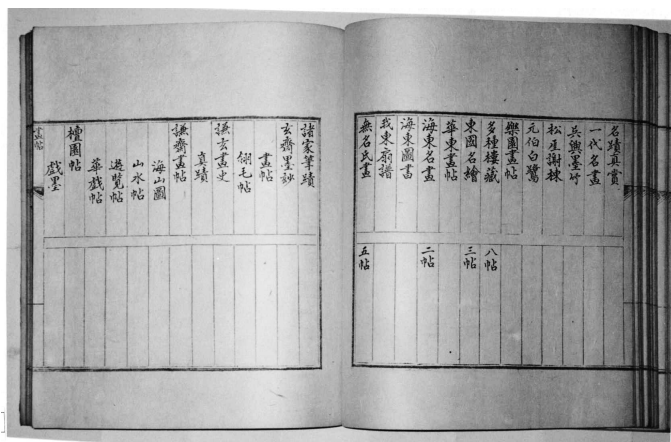 名蹟真賞
一代名畫
吳興墨竹
松厓謝棟
元伯白鷺
樂圃畫帖
多種樓藏 八帖
東國名繪 三帖
華東畫帖
海東名畫 二帖
海東圖書
我東扇譜
無名氏畫 五帖
諸家筆蹟
玄齋墨鈔
畫帖
翎毛帖
謙玄畫史
真蹟
謙齋畫帖
海山圖
山水帖
遊覽帖
華戲帖
檀園帖
戲墨
畫帖